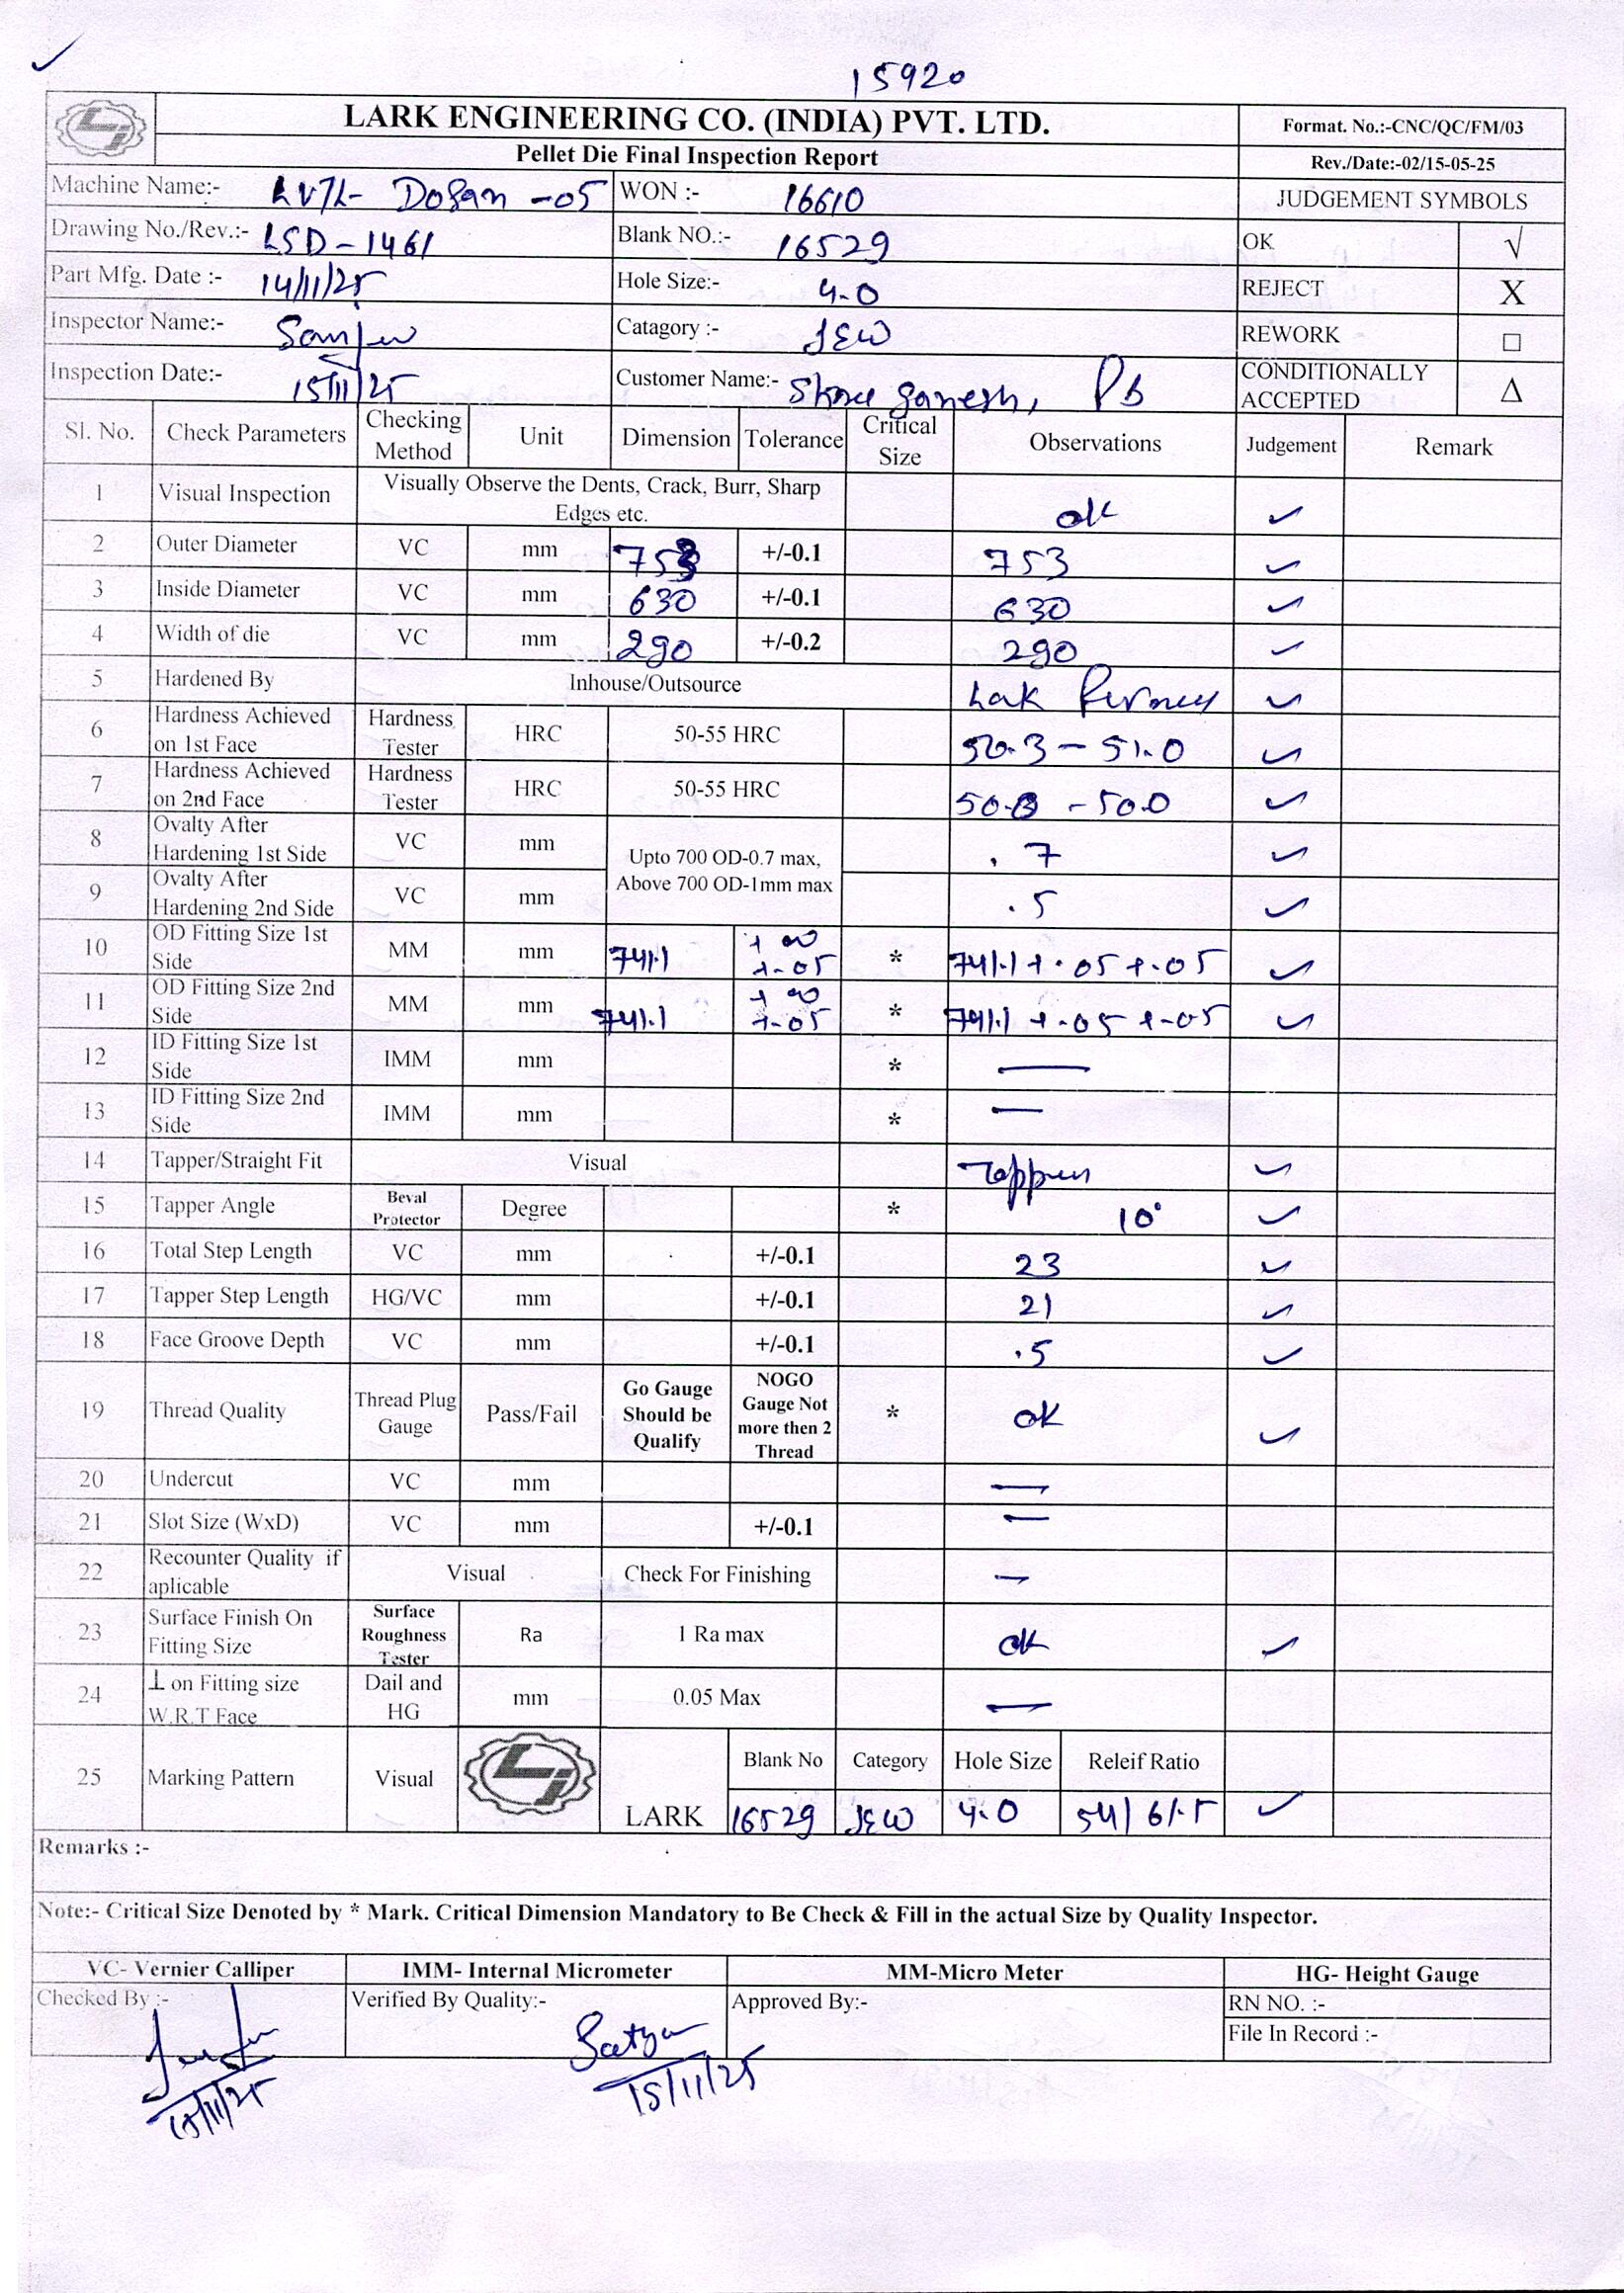 15920
LARK ENGINEERING CO. (INDIA) PVT. LTD.
Format. No.:-CNC/QC/FM/03
Pellet Die Final Inspection Report
Rev./Date:-02/15-05-25
Machine Name:- -05 WON :- 16610 JUDGEMENT SYMBOLS
Drawing No./Rev.:- LSD-1461 Blank NO.:- 16529 OK √
Part Mfg. Date :- 14/11/25 Hole Size:- 4.0 REJECT X
Inspector Name:- Catagory :- REWORK □
Inspection Date:- 15/11/25 Customer Name:- Shree Ganesh, PB CONDITIONALLY ACCEPTED Δ
Sl. No. Check Parameters Checking Method Unit Dimension Tolerance Critical Size Observations Judgement Remark
1 Visual Inspection Visually Observe the Dents, Crack, Burr, Sharp Edges etc. ok ✓
2 Outer Diameter VC mm 753 +/-0.1 753 ✓
3 Inside Diameter VC mm 630 +/-0.1 630 ✓
4 Width of die VC mm 290 +/-0.2 290 ✓
5 Hardened By Inhouse/Outsource ✓
6 Hardness Achieved on 1st Face Hardness Tester HRC 50-55 HRC 50.3 - 51.0 ✓
7 Hardness Achieved on 2nd Face Hardness Tester HRC 50-55 HRC ✓
8 Ovalty After Hardening 1st Side VC mm Upto 700 OD-0.7 max, Above 700 OD-1mm max .7 ✓
9 Ovalty After Hardening 2nd Side VC mm .5 ✓
10 OD Fitting Size 1st Side MM mm 741.1 +.05 * 741.1 +.05 +.05 ✓
11 OD Fitting Size 2nd Side MM mm 741.1 +.05 * 741.1 +.05 +.05 ✓
12 ID Fitting Size 1st Side IMM mm * —
13 ID Fitting Size 2nd Side IMM mm * —
14 Tapper/Straight Fit Visual Tapper ✓
15 Tapper Angle Beval Protector Degree * 10° ✓
16 Total Step Length VC mm +/-0.1 23 ✓
17 Tapper Step Length HG/VC mm +/-0.1 21 ✓
18 Face Groove Depth VC mm +/-0.1 .5 ✓
19 Thread Quality Thread Plug Gauge Pass/Fail Go Gauge Should be Qualify NOGO Gauge Not more then 2 Thread * ok ✓
20 Undercut VC mm —
21 Slot Size (WxD) VC mm +/-0.1 —
22 Recounter Quality if aplicable Visual Check For Finishing —
23 Surface Finish On Fitting Size Surface Roughness Tester Ra 1 Ra max ok ✓
24 ⊥ on Fitting size W.R.T Face Dail and HG mm 0.05 Max —
25 Marking Pattern Visual LARK Blank No Category Hole Size Releif Ratio
16529 4.0 54/61.5 ✓
Remarks :-
Note:- Critical Size Denoted by * Mark. Critical Dimension Mandatory to Be Check & Fill in the actual Size by Quality Inspector.
VC- Vernier Calliper IMM- Internal Micrometer MM-Micro Meter HG- Height Gauge
Checked By :- Verified By Quality:- Approved By:- RN NO. :-
File In Record :-
15/11/25 15/11/25